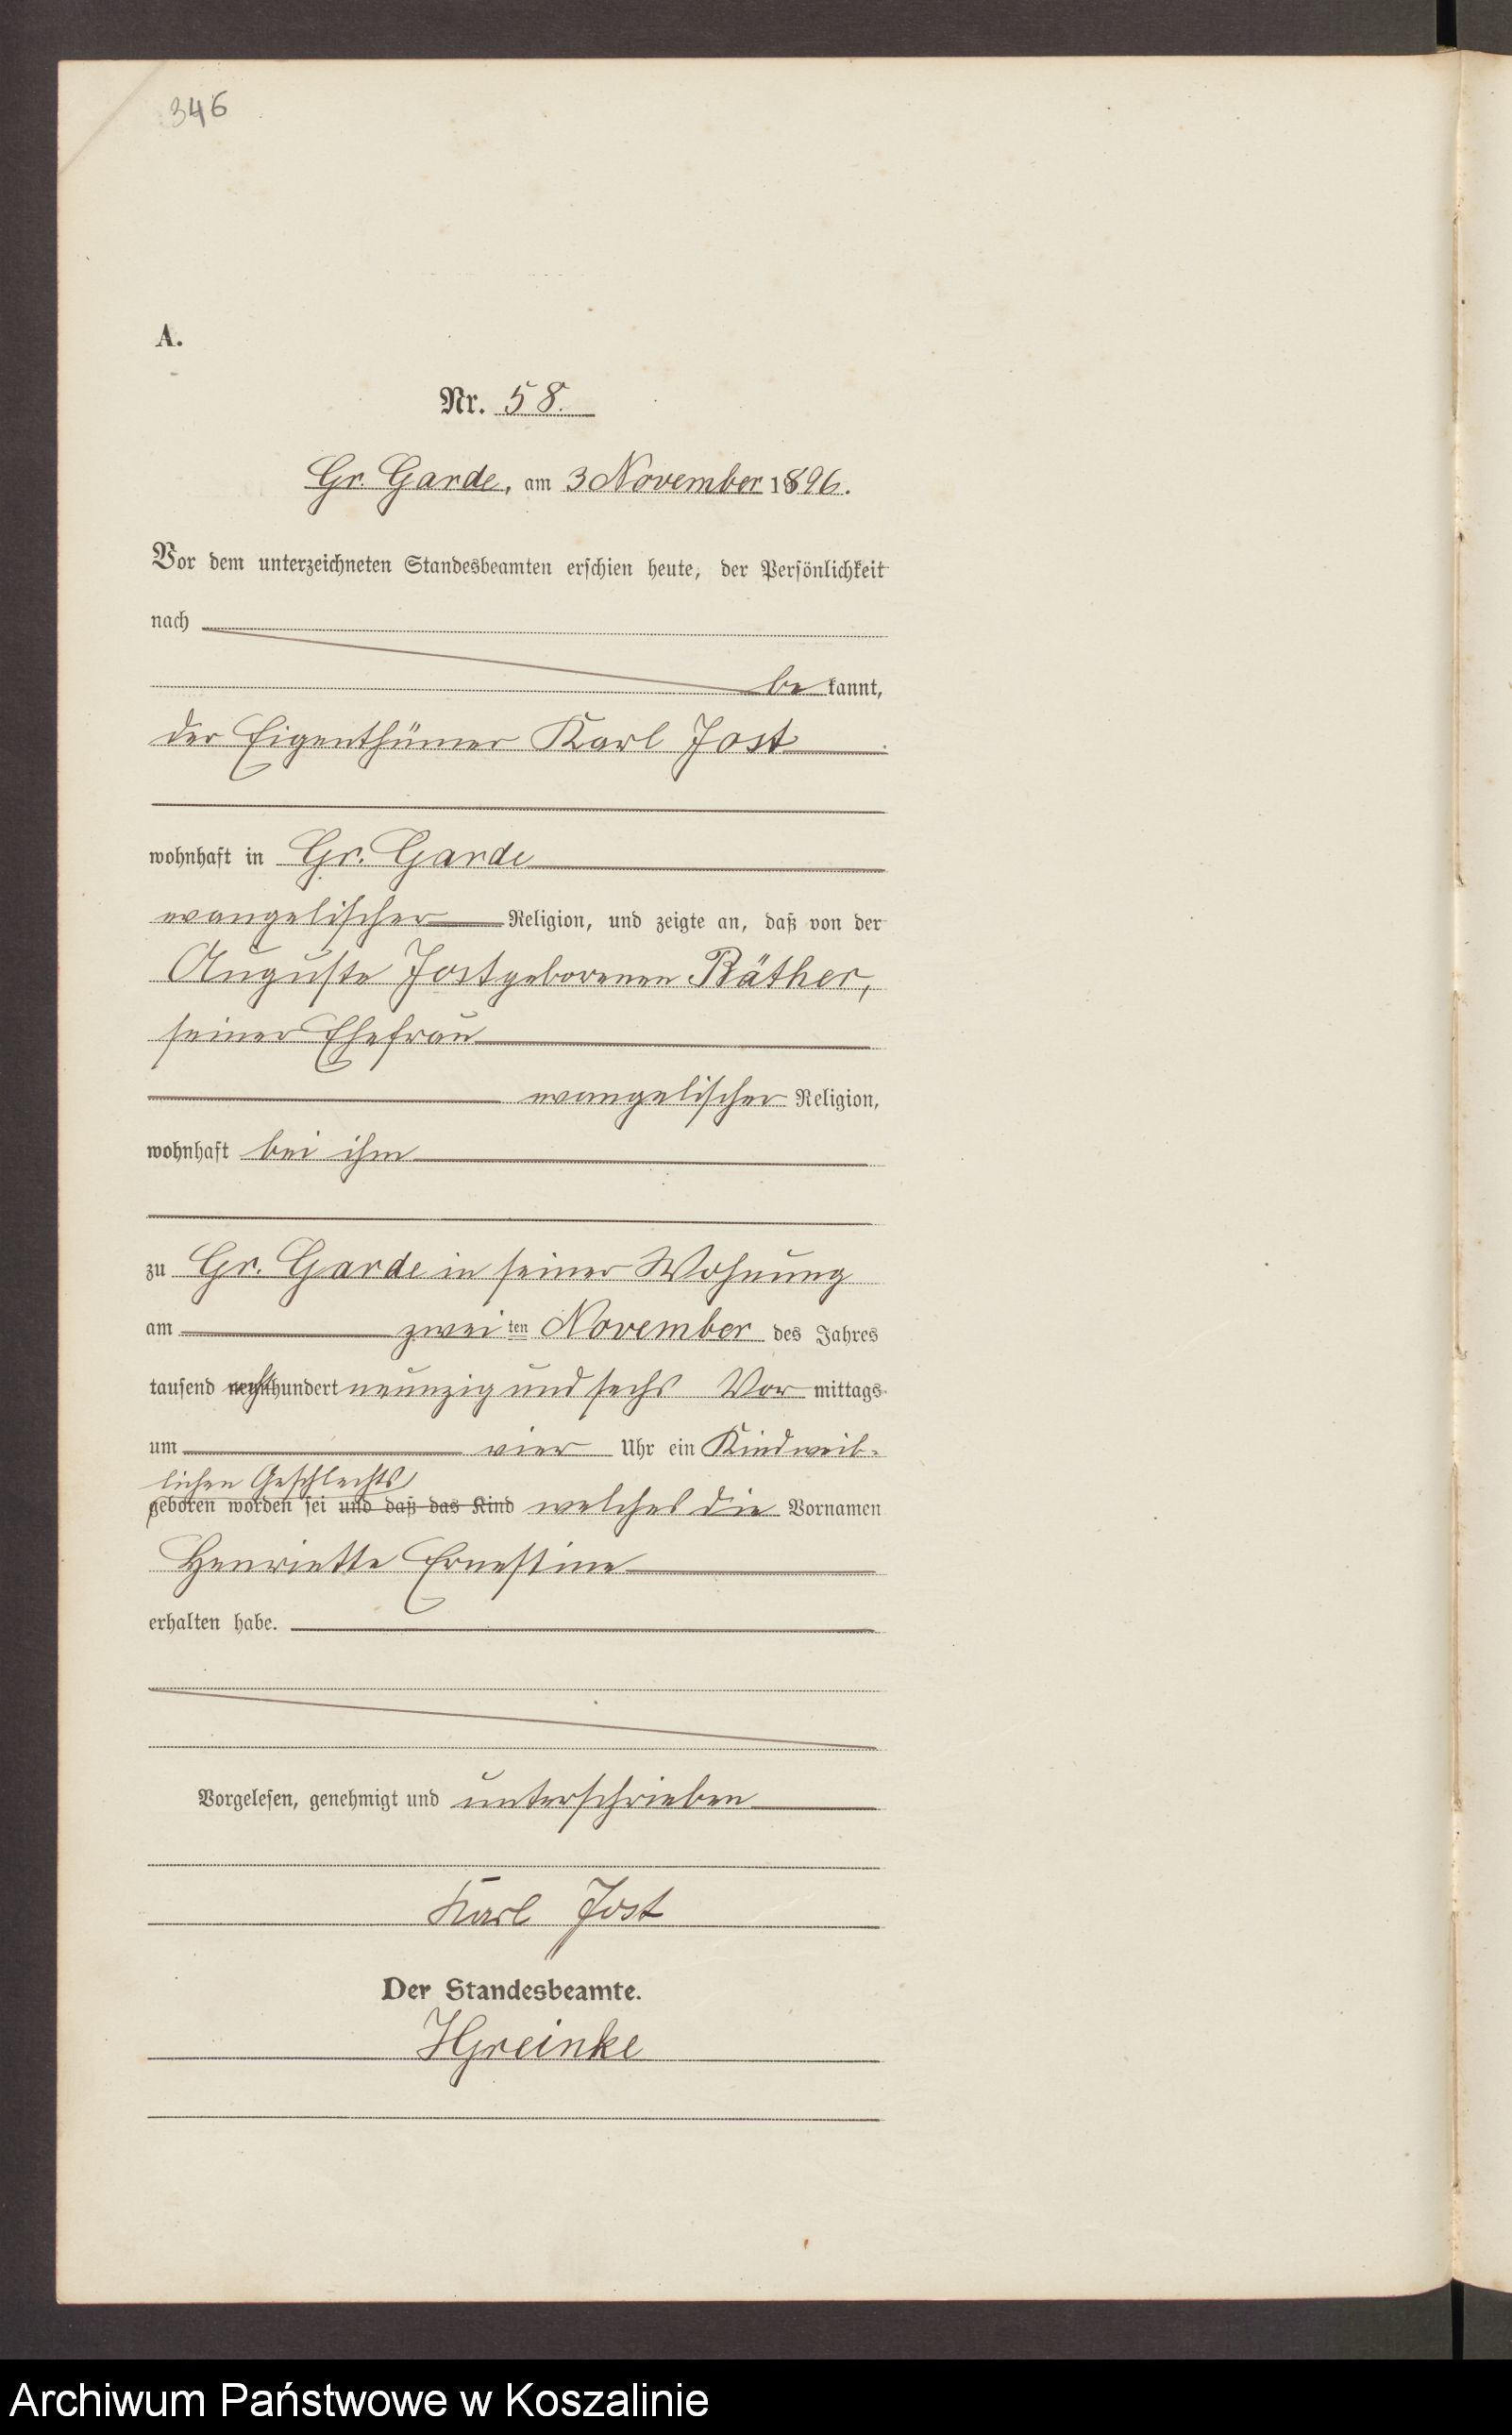 346
A.
Nr. 58.
Gr. Garde, am 3 November 1896.
Vor dem unterzeichneten Standesbeamten erschien heute, der Persönlichkeit
nach
be kannt,
der Eigenthümer Karl Jost
wohnhaft in Gr. Garde
evangelischer Religion, und zeigte an, daß von der
Auguste Jost geborenen Räther,
seiner Ehefrau
evangelischer Religion,
wohnhaft bei ihm
zu Gr. Garde in seiner Wohnung
am zwei ten November des Jahres
tausend achthundert neunzig und sechs Vor mittags
um vier Uhr ein Kind weib-
lichen Geschlechts
geboren worden sei und daß das Kind welches die Vornamen
Henriette Ernestine
erhalten habe.
Vorgelesen, genehmigt und unterschrieben
Karl Jost
Der Standesbeamte.
HGreinke
Archiwum Państwowe w Koszalinie